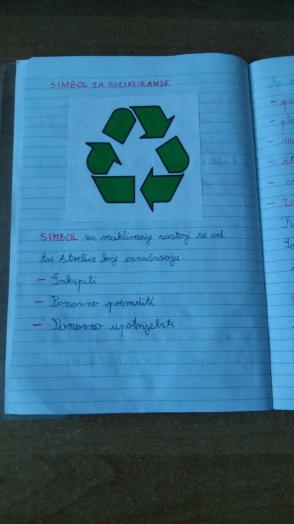 SIMBOL ZA RECIKLIRANJE
SIMBOL za recikliranje sastoji se od
tri strelice koje označavaju:
- Sakupiti
- Ponovno preraditi
- Ponovno upotrijebiti